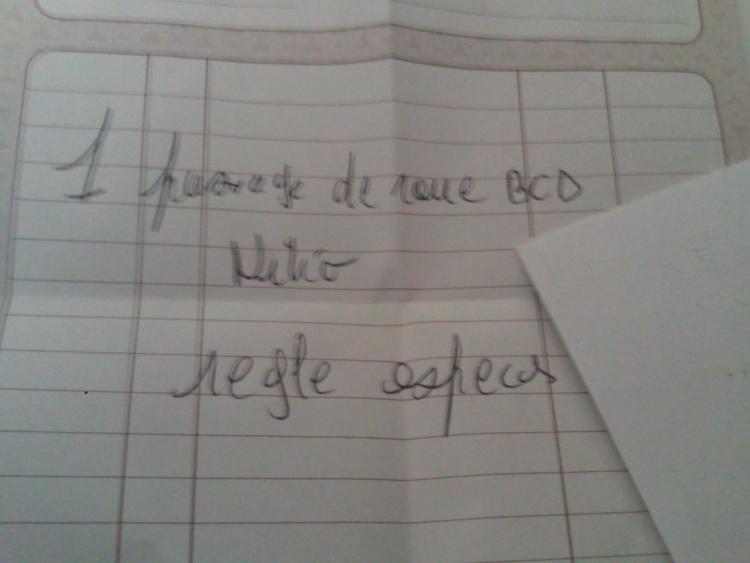 1 passage de roue BCD
Nitro
regle especes